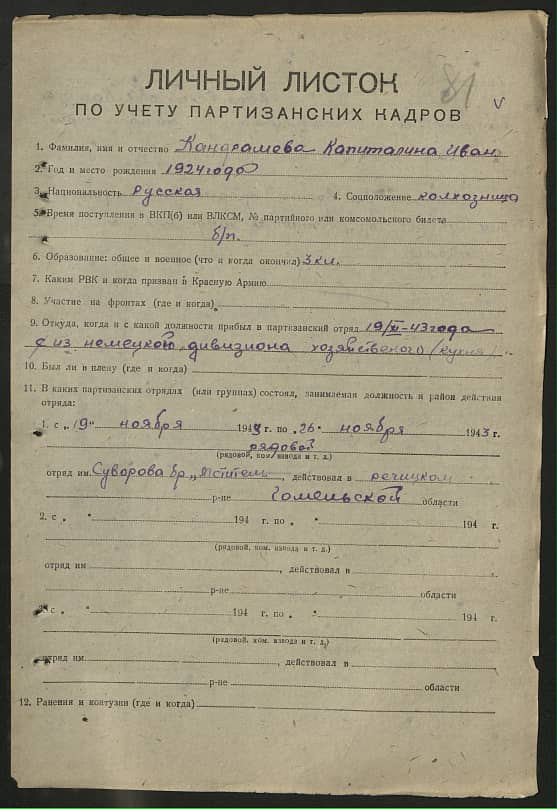 81
v
ЛИЧНЫЙ ЛИСТОК
ПО УЧЕТУ ПАРТИЗАНСКИХ КАДРОВ
1. Фамилия, имя и отчество Кандрамева Капиталина Иван
2. Год и место рождения 1924 года
3. Национальность Русская 4. Соцположение колхозница
5. Время поступления в ВКП(б) или ВЛКСМ, № партийного или комсомольского билета
б/п.
6. Образование: общее и военное (что и когда окончил) 3 кл.
7. Каким РВК и когда призван в Красную Армию
8. Участие на фронтах (где и когда)
9. Откуда, когда и с какой должности прибыл в партизанский отряд 19/XI-43 года
из немецкого дивизиона хозяйственого /кухня/
10. Был ли в плену (где и когда)
11. В каких партизанских отрядах (или группах) состоял, занимаемая должность и район действия
отряда:
1. с „19" ноября 1943 г. по „26" ноября 1943 г.
рядовой
(рядовой, ком. взвода и т. д.)
отряд им. Суворова бр. „Мститель, действовал в речицком
р-не Гомельской области
2. с „ " 194 г. по „ " 194 г.
(рядовой, ком. взвода и т. д.)
отряд им , действовал в
р-не области
3. с „ " 194 г. по „ " 194 г.
(рядовой, ком. взвода и т. д.)
отряд им. , действовал в
р-не области
12. Ранения и контузии (где и когда)